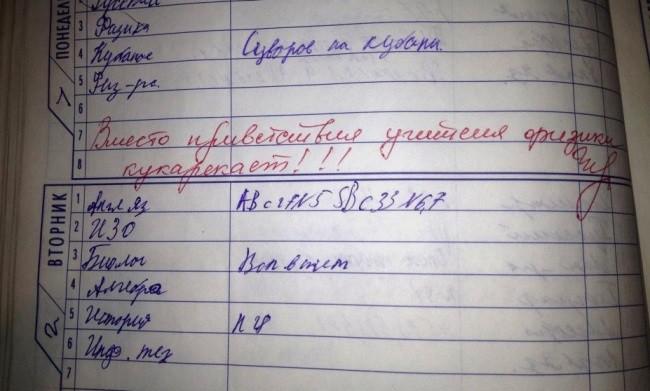 ПОНЕДЕЛ
7
3 Физика
4 Кубанов Суворов на кубани.
5 Физ-ра.
6
7 Вместо приветствия учителя физики
8 кукарекает!!!
ВТОРНИК
2
1 Англ яз АВ с 27 N5 SB с 33 N6,7
2 ИЗО
3 Биолог
4 Алгебра
5 История
6 Инф. тех
7